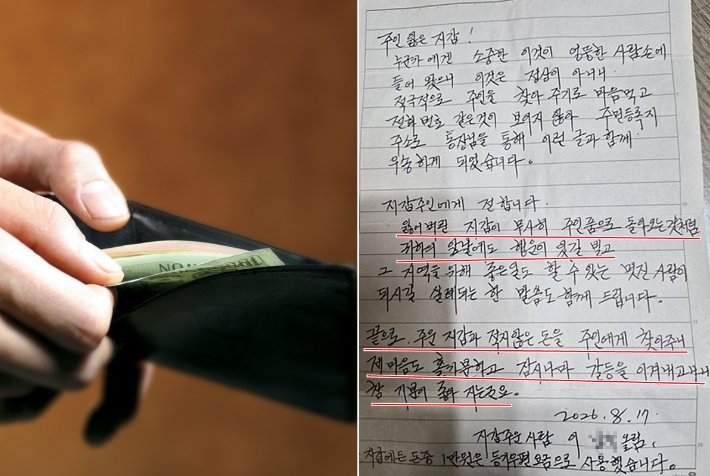 주인 잃은 지갑!
누군가에겐 소중한 이것이 엉뚱한 사람손에
들어 왔으니 이것은 정상이 아니니
적극적으로 주인을 찾아 주기로 마음먹고
전화번호 같은것이 보이지 않아 주민등록지
주소로 통장님을 통해 이런 글과 함께
우송하게 되었습니다.
지갑주인에게 전합니다
잃어버린 지갑이 무사히 주인품으로 돌아오는것처럼
귀하의 앞날에도 행운이 있길 빌고
그 지역을 위해 좋은일도 할 수 있는 멋진 사람이
되시길 설레되는 한 말씀도 함께 드립니다.
끝으로. 주운 지갑과 적지않은 돈을 주인에게 찾아주니
제마음도 홀가분하고 잠시나마 갈등을 이겨내고나니
참 기분이 좋아 지는군요.
2026. 8. 17
지갑주운사람 이 올림.
지갑에든 돈중 1만원은 등기우편 요금으로 사용했습니다.